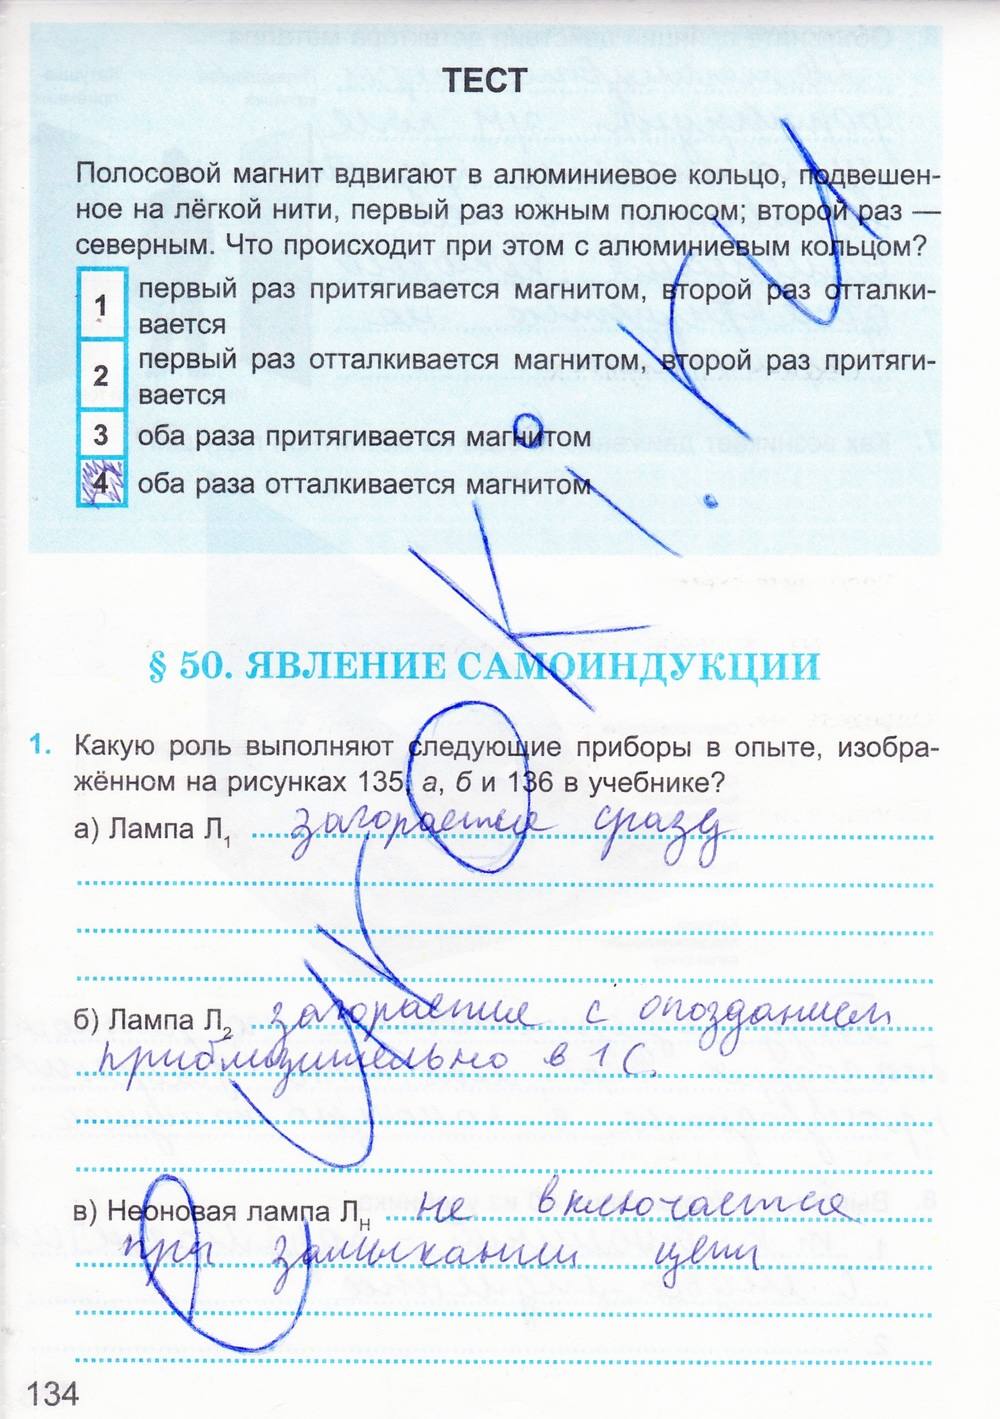 ТЕСТ
Полосовой магнит вдвигают в алюминиевое кольцо, подвешен-
ное на лёгкой нити, первый раз южным полюсом; второй раз —
северным. Что происходит при этом с алюминиевым кольцом?
1 первый раз притягивается магнитом, второй раз отталки-
вается
2 первый раз отталкивается магнитом, второй раз притяги-
вается
3 оба раза притягивается магнитом
4 оба раза отталкивается магнитом
§ 50. ЯВЛЕНИЕ САМОИНДУКЦИИ
1. Какую роль выполняют следующие приборы в опыте, изобра-
жённом на рисунках 135, а, б и 136 в учебнике?
а) Лампа Л1 загорается сразу
б) Лампа Л2 загорается с опозданием
приблизительно в 1 С.
в) Неоновая лампа ЛН не включается
при замыкании цепи
134